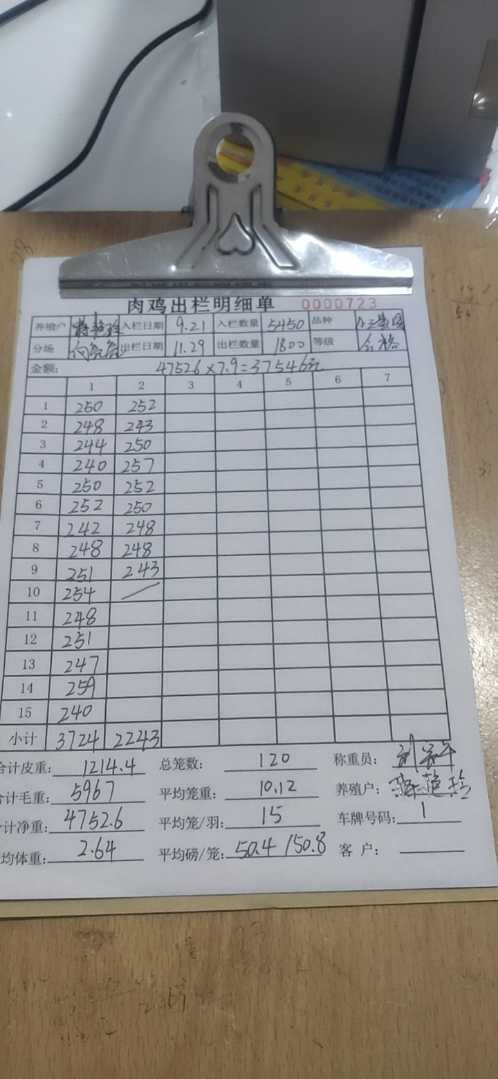 肉鸡出栏明细单 0000723
养殖户 入栏日期 9.21 入栏数量 5450 品种
分场 出栏日期 11.29 出栏数量 1800 等级 合格
金额: 4752.6×7.9=37546元
1 2 3 4 5 6 7
1 250 252
2 248 243
3 244 250
4 240 257
5 250 252
6 252 250
7 242 248
8 248 248
9 251 243
10 254
11 248
12 251
13 247
14 259
15 240
小计 3724 2243
合计皮重: 1214.4 总笼数: 120 称重员:
合计毛重: 5967 平均笼重: 10.12 养殖户:
合计净重: 4752.6 平均笼/羽: 15 车牌号码: 1
平均体重: 2.64 平均磅/笼: 50.4 / 50.8 客户: